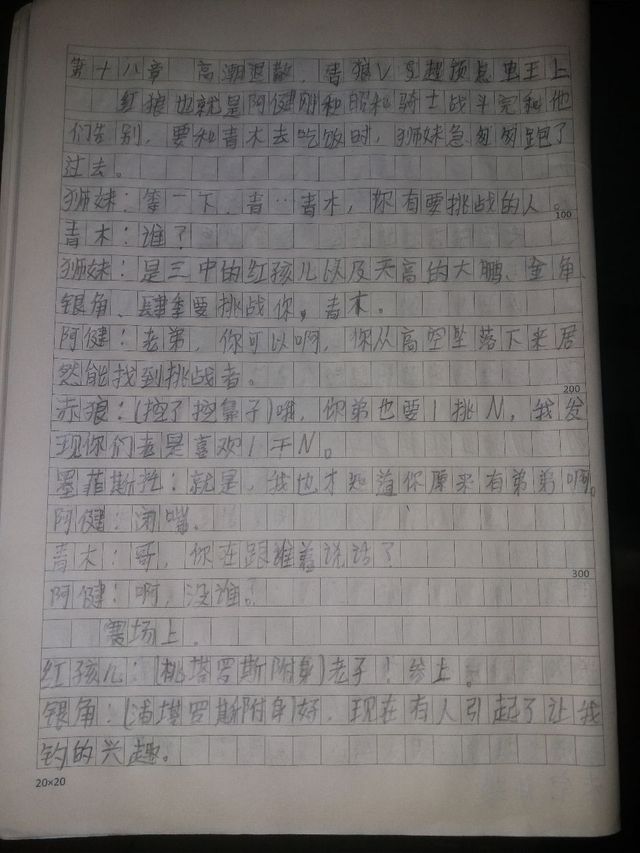 第十八章 高潮退散，青狼V穿越颈虫王上
红狼也就是阿健刚和昭和骑士战斗完和他
们告别，要和青木去吃饭时，狮妹急匆匆跑了
过去。
狮妹：等一下，青…青木，你有要挑战的人。
100
青木：谁？
狮妹：是三中的红孩儿以及天高的大鹏、金角、
银角、肆季要挑战你，青木。
阿健：老弟，你可以啊，你从高空坠落下来居
然能找到挑战者。
200
赤狼：(挖了挖鼻子)哦，你弟也要1挑N，我发
现你们老是喜欢1干N。
墨菲斯托：就是，我也才知道你原来有弟弟啊。
阿健：闭嘴。
青木：哥，你在跟谁说话？
300
阿健：啊，没谁。
赛场上，
红孩儿：(桃塔罗斯附身)老子！参上。
银角：(浦塔罗斯附身)好，现在有人引起了让我
钓的兴趣。
20×20